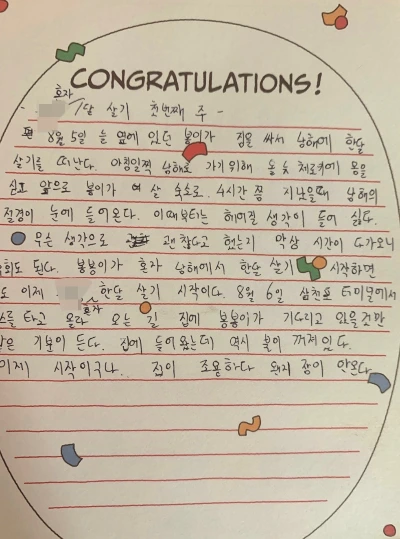 CONGRATULATIONS!
혼자
- 달 살기 첫번째 주 -
8월 5일 늘 옆에 있던 봉이가 짐을 싸서 남해에 한달
살기를 떠난다. 아침일찍 남해로 가기위해 몸을
싣고 앞으로 봉이가 살 숙소로. 4시간 쯤 지났을때 남해의
절경이 눈에 들어온다. 이때부터는 헤어질 생각이 들어 싫다.
무슨 생각으로 괜찮다고 했는지 막상 시간이 다가오니
후회도 된다. 봉봉이가 혼자 남해에서 한달 살기 시작하면
도 이제 혼자 한달 살기 시작이다. 8월 6일 삼천포 터미널에서
스를 타고 올라 오는 길 집에 봉봉이가 기다리고 있을것만
같은 기분이 든다. 집에 들어왔는데 역시 불이 꺼져있다.
이제 시작이구나.. 집이 조용하다 왠지 잠이 안온다.